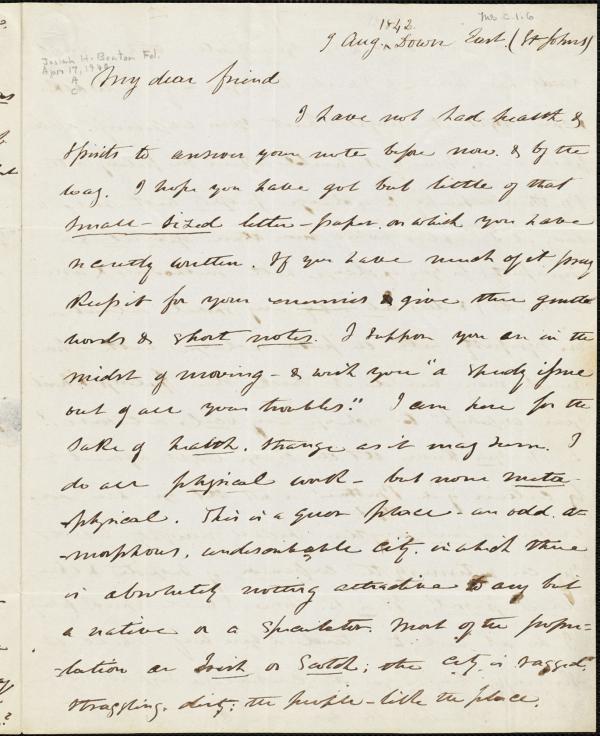 Ms. E.1.6
1842
9 Aug. Down East. (St Johns)
Josiah H. Benton Fd.
Apr. 17, 1948
A
C
My dear friend
I have not had health &
spirits to answer your note before now. & by the
way. I hope you have got but little of that
small-sized letter-paper. on which you have
recently written. If you have much of it pray
keep it for your enemies & give them gentle
words & short notes. I suppose you are in the
midst of moving - & wish you "a speedy issue
out of all your troubles." I am here for the
sake of health. strange as it may seem. I
do all physical work - but none meta-
-physical. This is a queer place - an odd. a-
-morphous. undescribable city. in which there
is absolutely nothing attractive to any but
a native or a speculator. Most of the popu-
-lation are Irish or Scotch; the city is ragged.
straggling. dirty; the people - like the place.